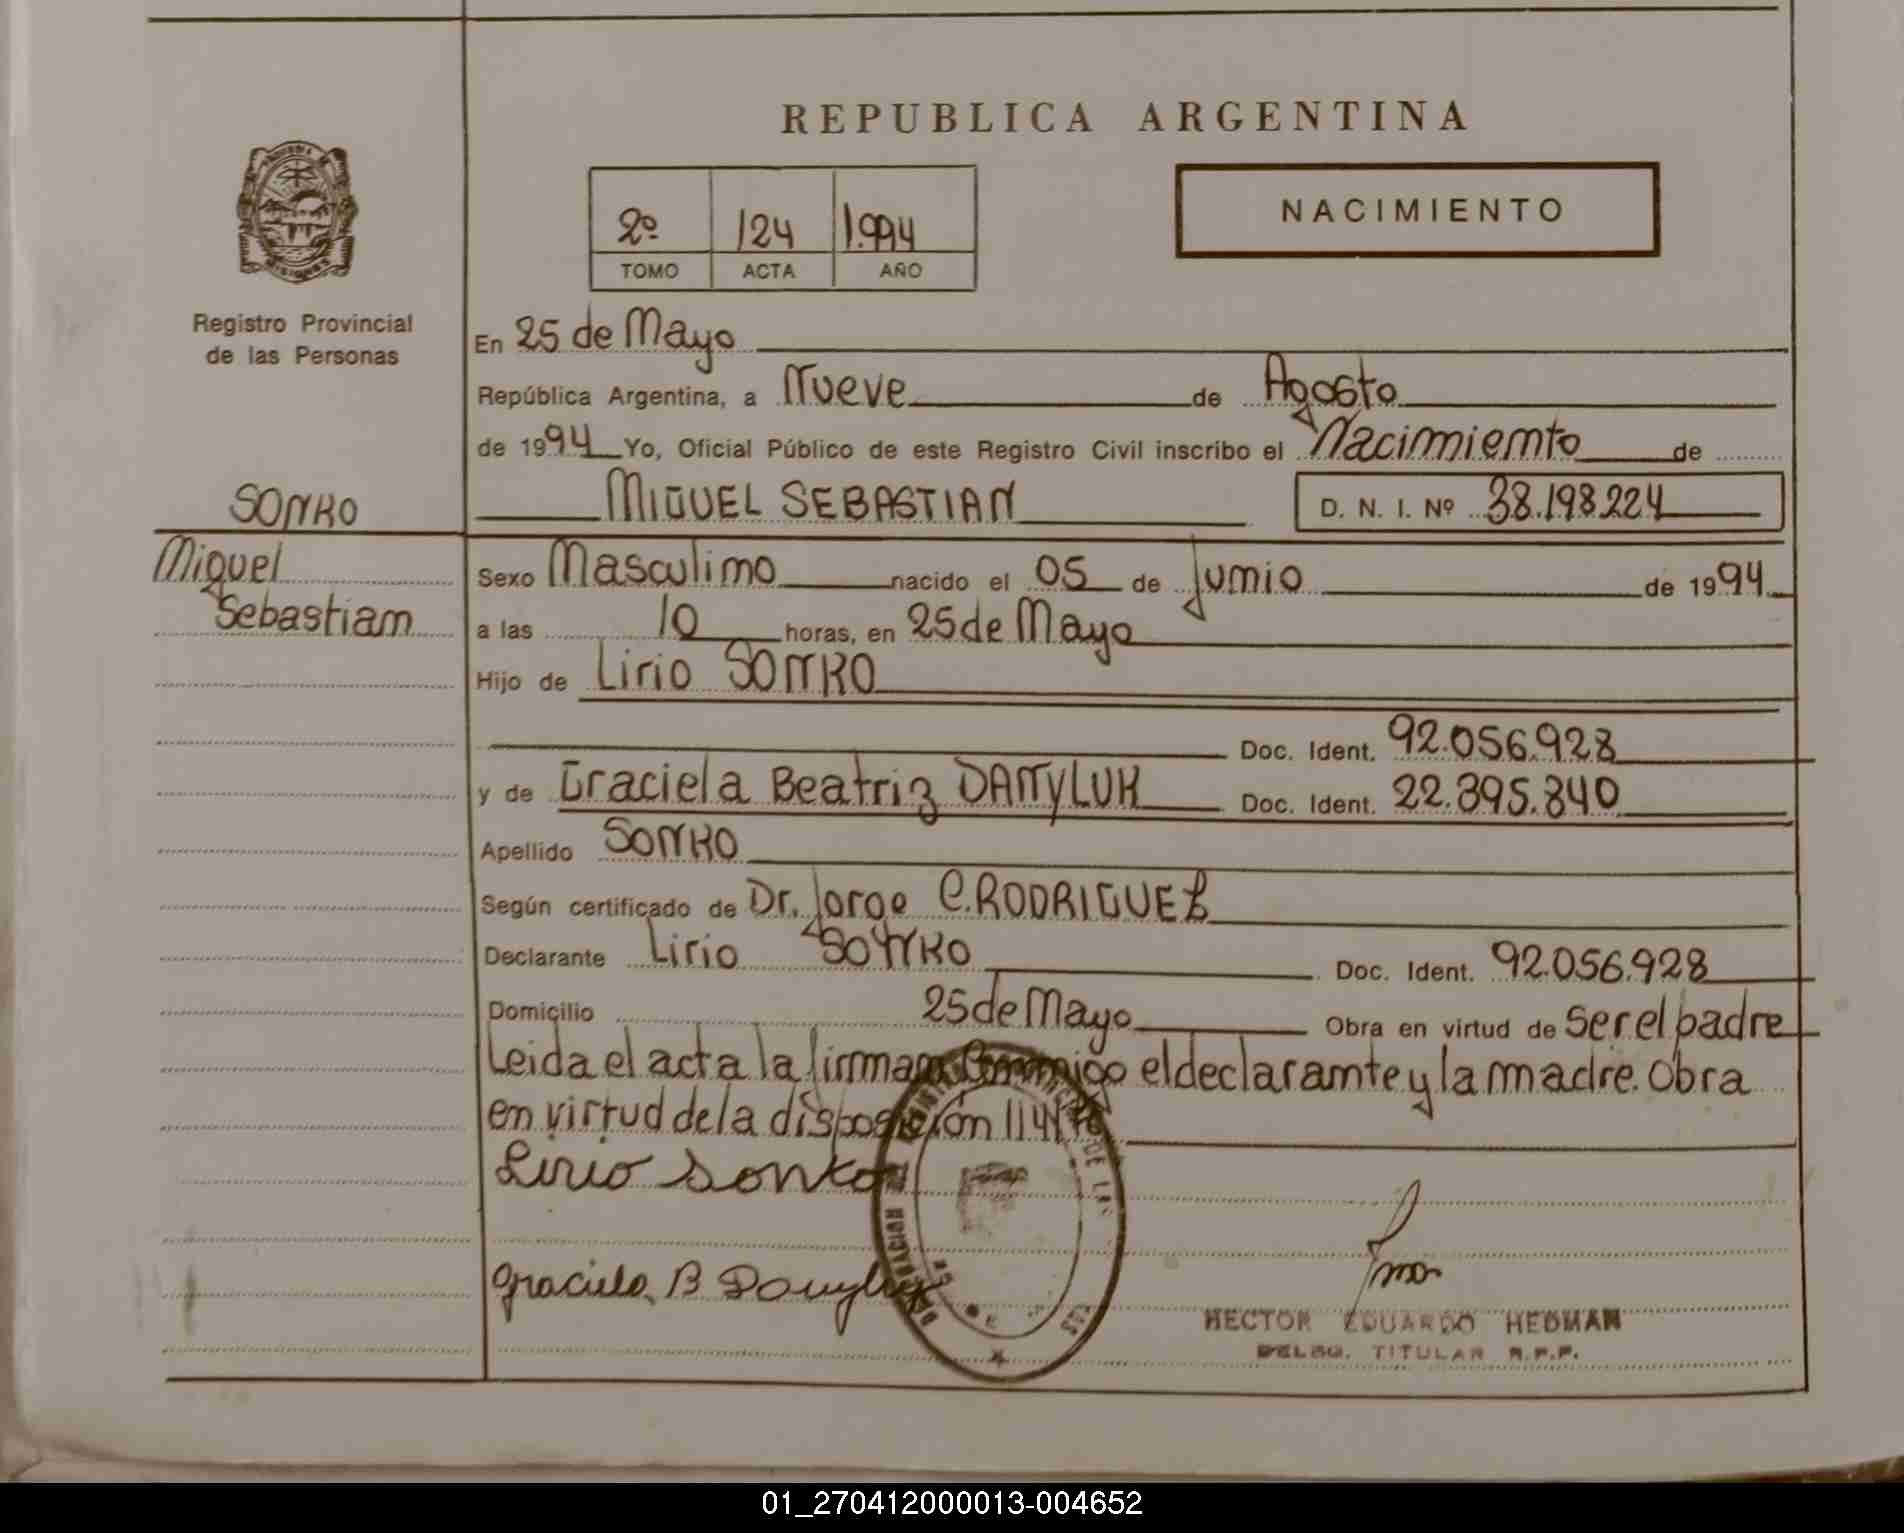 REPUBLICA ARGENTINA
NACIMIENTO
2º 124 1.994
TOMO ACTA AÑO
MISIONES
Registro Provincial
de las Personas
SONKO
Miguel
Sebastian
En 25 de Mayo
República Argentina, a Nueve de Agosto
de 1994 Yo, Oficial Público de este Registro Civil inscribo el Nacimiento de
MIGUEL SEBASTIAN D. N. I. Nº 38.198.224
Sexo Masculino nacido el 05 de Junio de 1994
a las 10 horas, en 25 de Mayo
Hijo de Lirio SONKO
Doc. Ident. 92.056.928
y de Graciela Beatriz DANYLUK Doc. Ident. 22.395.340
Apellido SONKO
Según certificado de Dr. Jorge C. RODRIGUEZ
Declarante Lirio SONKO Doc. Ident. 92.056.928
Domicilio 25 de Mayo Obra en virtud de Ser el padre
Leida el acta la firman Conmigo el declarante y la madre. Obra
en virtud de la disposición
Lirio Sonko
Graciela B Danyluk
HECTOR EDUARDO HEDMAN
DELEG. TITULAR R.P.P.
01_270412000013-004652